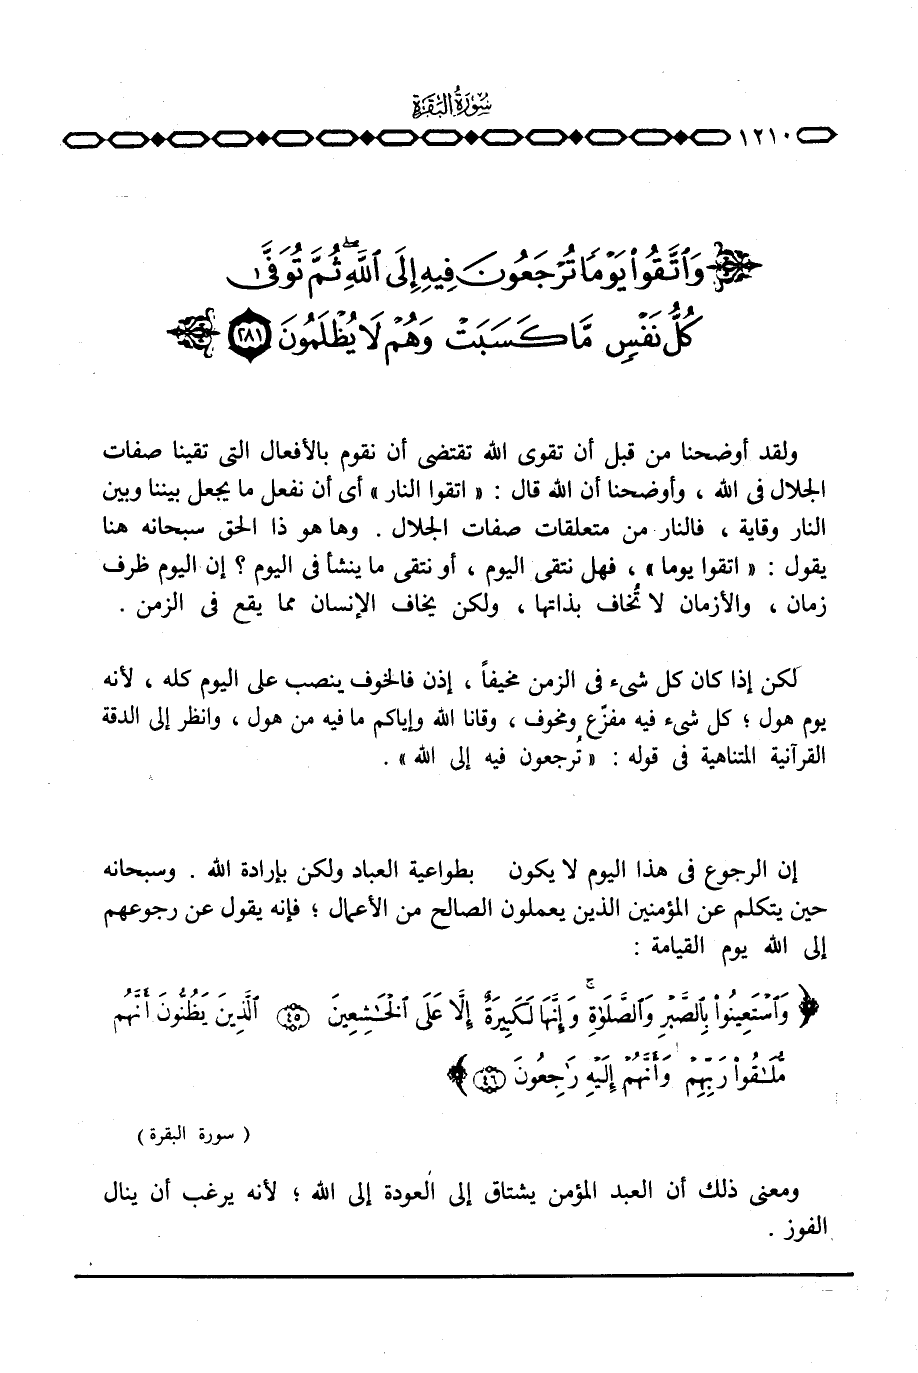 سُورَةُ البَقَرَةِ
١٢١٠
وَٱتَّقُوا۟ يَوْمًا تُرْجَعُونَ فِيهِ إِلَى ٱللَّهِ ۖ ثُمَّ تُوَفَّىٰ
كُلُّ نَفْسٍ مَّا كَسَبَتْ وَهُمْ لَا يُظْلَمُونَ ﴿٢٨١﴾
ولقد أوضحنا من قبل أن تقوى الله تقتضى أن نقوم بالأفعال التى تقينا صفات
الجلال فى الله ، وأوضحنا أن الله قال : « اتقوا النار » أى أن نفعل ما يجعل بيننا وبين
النار وقاية ، فالنار من متعلقات صفات الجلال . وها هو ذا الحق سبحانه هنا
يقول : « اتقوا يوما » ، فهل نتقى اليوم ، أو نتقى ما ينشأ فى اليوم ؟ إن اليوم ظرف
زمان ، والأزمان لا تُخاف بذاتها ، ولكن يخاف الإنسان مما يقع فى الزمن .
لكن إذا كان كل شىء فى الزمن مخيفاً ، إذن فالخوف ينصب على اليوم كله ، لأنه
يوم هول ؛ كل شىء فيه مفزّع ومخوف ، وقانا الله وإياكم ما فيه من هول ، وانظر إلى الدقة
القرآنية المتناهية فى قوله : « تُرجعون فيه إلى الله » .
إن الرجوع فى هذا اليوم لا يكون بطواعية العباد ولكن بإرادة الله . وسبحانه
حين يتكلم عن المؤمنين الذين يعملون الصالح من الأعمال ؛ فإنه يقول عن رجوعهم
إلى الله يوم القيامة :
﴿ وَٱسْتَعِينُوا۟ بِٱلصَّبْرِ وَٱلصَّلَوٰةِ ۚ وَإِنَّهَا لَكَبِيرَةٌ إِلَّا عَلَى ٱلْخَـٰشِعِينَ ﴿٤٥﴾ ٱلَّذِينَ يَظُنُّونَ أَنَّهُم
مُّلَـٰقُوا۟ رَبِّهِمْ وَأَنَّهُمْ إِلَيْهِ رَٰجِعُونَ ﴿٤٦﴾ ﴾
( سورة البقرة )
ومعنى ذلك أن العبد المؤمن يشتاق إلى العودة إلى الله ؛ لأنه يرغب أن ينال
الفوز .